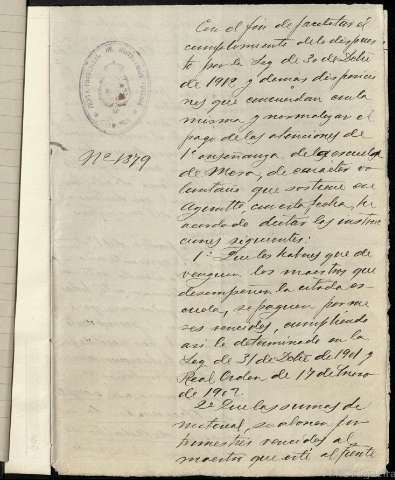 Con el fin de facilitar el
cumplimiento de lo dispues
to por la Ley de 30 de Dbre
de 1912 y demas disposicio
nes que concuerdan con la
misma y normalizar el
pago de las atenciones de
Nº 1379
1ª enseñanza de la escuela
de Mora, de caracter vo
luntario que sostiene ese
Ayuntto, con esta fecha he
acordado dictar las instruc
ciones siguientes:
1ª Que los haberes que de
venguen los maestros que
desempeñen la citada es
cuela, se paguen por me
ses vencidos, cumpliendo
asi lo determinado en la
Ley de 31 de Dbre de 1901 y
Real Orden de 17 de Enero
de 1902.
2ª Que las sumas de
material, se abonen por
trimestres vencidos al
maestro que esté al frente